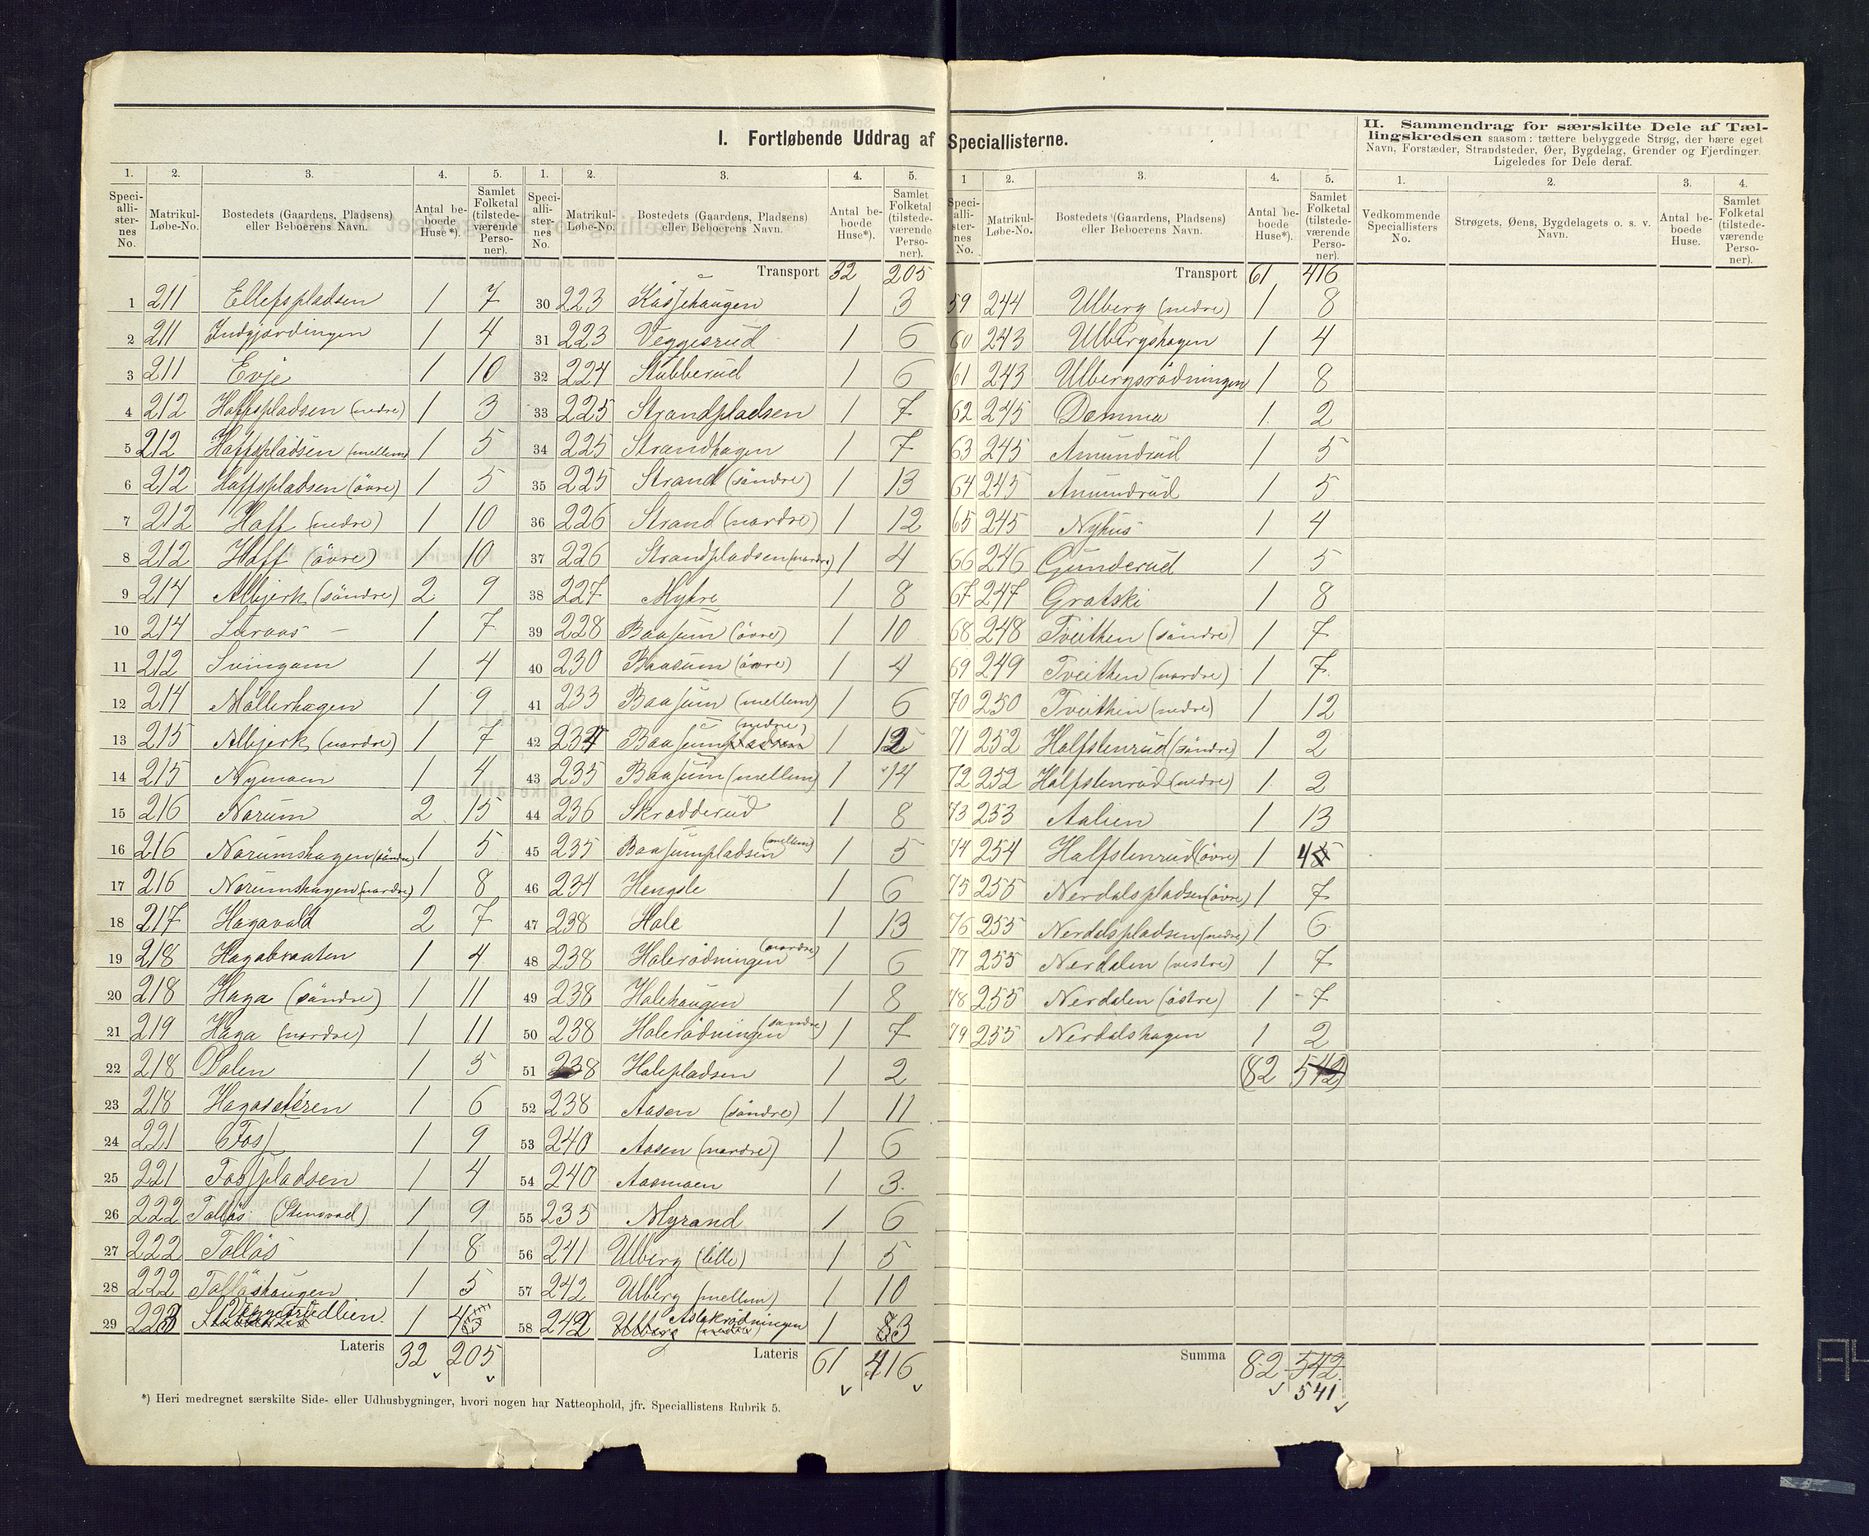 I. Fortløbende Uddrag af Speciallisterne.
II. Sammendrag for særskilte Dele af Tæl-
lingskredsen saasom: tættere bebyggede Strøg, der bære eget
Navn, Forstæder, Strandsteder, Øer, Bygdelag, Grender og Fjerdinger.
Ligeledes for Dele deraf.
1. 2. 3. 4. 5.
Speciallisternes No. Matrikul-Løbe-No. Bostedets (Gaardens, Pladsens) eller Beboerens Navn. Antal beboede Huse*). Samlet Folketal (tilstedeværende Personer).
1 211 Ellefspladsen 1 7
2 211 Indgjærdingen 1 4
3 211 Evje 1 10
4 212 Hoffspladsen (nedre) 1 3
5 212 Hoffspladsen (mellem) 1 5
6 212 Hoffspladsen (övre) 1 5
7 212 Hoff (nedre) 1 10
8 212 Hoff (övre) 1 10
9 214 Albjerk (söndre) 2 9
10 214 Laraas 1 7
11 212 Svingom 1 4
12 214 Möllerhagen 1 9
13 215 Albjerk (nordre) 1 7
14 215 Nymoen 1 4
15 216 Norum 2 15
16 216 Norumshagen (söndre) 1 5
17 216 Norumshagen (nordre) 1 8
18 217 Hagavold 2 7
19 218 Hagabraaten 1 4
20 218 Haga (söndre) 1 11
21 219 Haga (nordre) 1 11
22 218 Dalen 1 5
23 218 Hagasetéren 1 6
24 221 Foss 1 9
25 221 Fosspladsen 1 4
26 222 Tollös (Stensvad) 1 9
27 222 Tollös 1 8
28 222 Tollöshaugen 1 5
29 223 1 4
Lateris 32 205
1. 2. 3. 4. 5.
Speciallisternes No. Matrikul-Løbe-No. Bostedets (Gaardens, Pladsens) eller Beboerens Navn. Antal beboede Huse*). Samlet Folketal (tilstedeværende Personer).
Transport 32 205
30 223 Kåssehaugen 1 3
31 223 Veggesrud 1 6
32 224 Stubberud 1 6
33 225 Strandpladsen 1 7
34 225 Strandhagen 1 7
35 225 Strand (söndre) 1 13
36 226 Strand (nordre) 1 12
37 226 Strandpladsen (nordre) 1 4
38 227 Myhre 1 8
39 228 Baasum (övre) 1 10
40 230 Baasum (övre) 1 4
41 233 Baasum (mellem) 1 6
42 234 Baasum (nedre) 1 12
43 235 Baasum (mellem) 1 14
44 236 Skrødderud 1 8
45 235 Baasumpladsen (mellem) 1 5
46 234 Hengsle 1 6
47 238 Hole 1 13
48 238 Holerödningen (nordre) 1 6
49 238 Holehaugen 1 8
50 238 Holerödningen (söndre) 1 7
51 238 Holepladsen 1 2
52 238 Aasen (söndre) 1 11
53 240 Aasen (nordre) 1 6
54 240 Aasmoen 1 3
55 235 Myrand 1 6
56 241 Ulberg (lille) 1 5
57 242 Ulberg (mellem) 1 10
58 242 Aslakrödningen 1 3
Lateris 61 416
1 2. 3. 4. 5.
Speciallisternes No. Matrikul-Løbe-No. Bostedets (Gaardens, Pladsens) eller Beboerens Navn. Antal beboede Huse*). Samlet Folketal (tilstedeværende Personer).
Transport 61 416
59 244 Ulberg (nedre) 1 8
60 243 Ulbergshagen 1 4
61 243 Ulbergsrödningen 1 8
62 245 Domma 1 2
63 245 Amundrud 1 5
64 245 Amundrud 1 5
65 245 Nyhus 1 4
66 246 Gunderud 1 5
67 247 Grotski 1 8
68 248 Tveithen (söndre) 1 7
69 249 Tveithen (nordre) 1 7
70 250 Tveithen (nedre) 1 12
71 252 Halfstenrud (söndre) 1 2
72 252 Halfstenrud (nedre) 1 2
73 253 Aalien 1 13
74 254 Halfstenrud (övre) 1 4
75 255 Nerdalspladsen (övre) 1 7
76 255 Nerdalspladsen (nedre) 1 6
77 255 Nerdalen (vestre) 1 7
78 255 Nerdalen (östre) 1 7
79 255 Nerdalshagen 1 2
(82 542)
Summa 82 542
541
1. 2. 3. 4.
Vedkommende Speciallisters No. Strøgets, Øens, Bygdelagets o. s. v. Navn. Antal beboede Huse. Samlet Folketal (tilstedeværende Personer).
*) Heri medregnet særskilte Side- eller Udhusbygninger, hvori nogen har Natteophold, jfr. Speciallistens Rubrik 5.